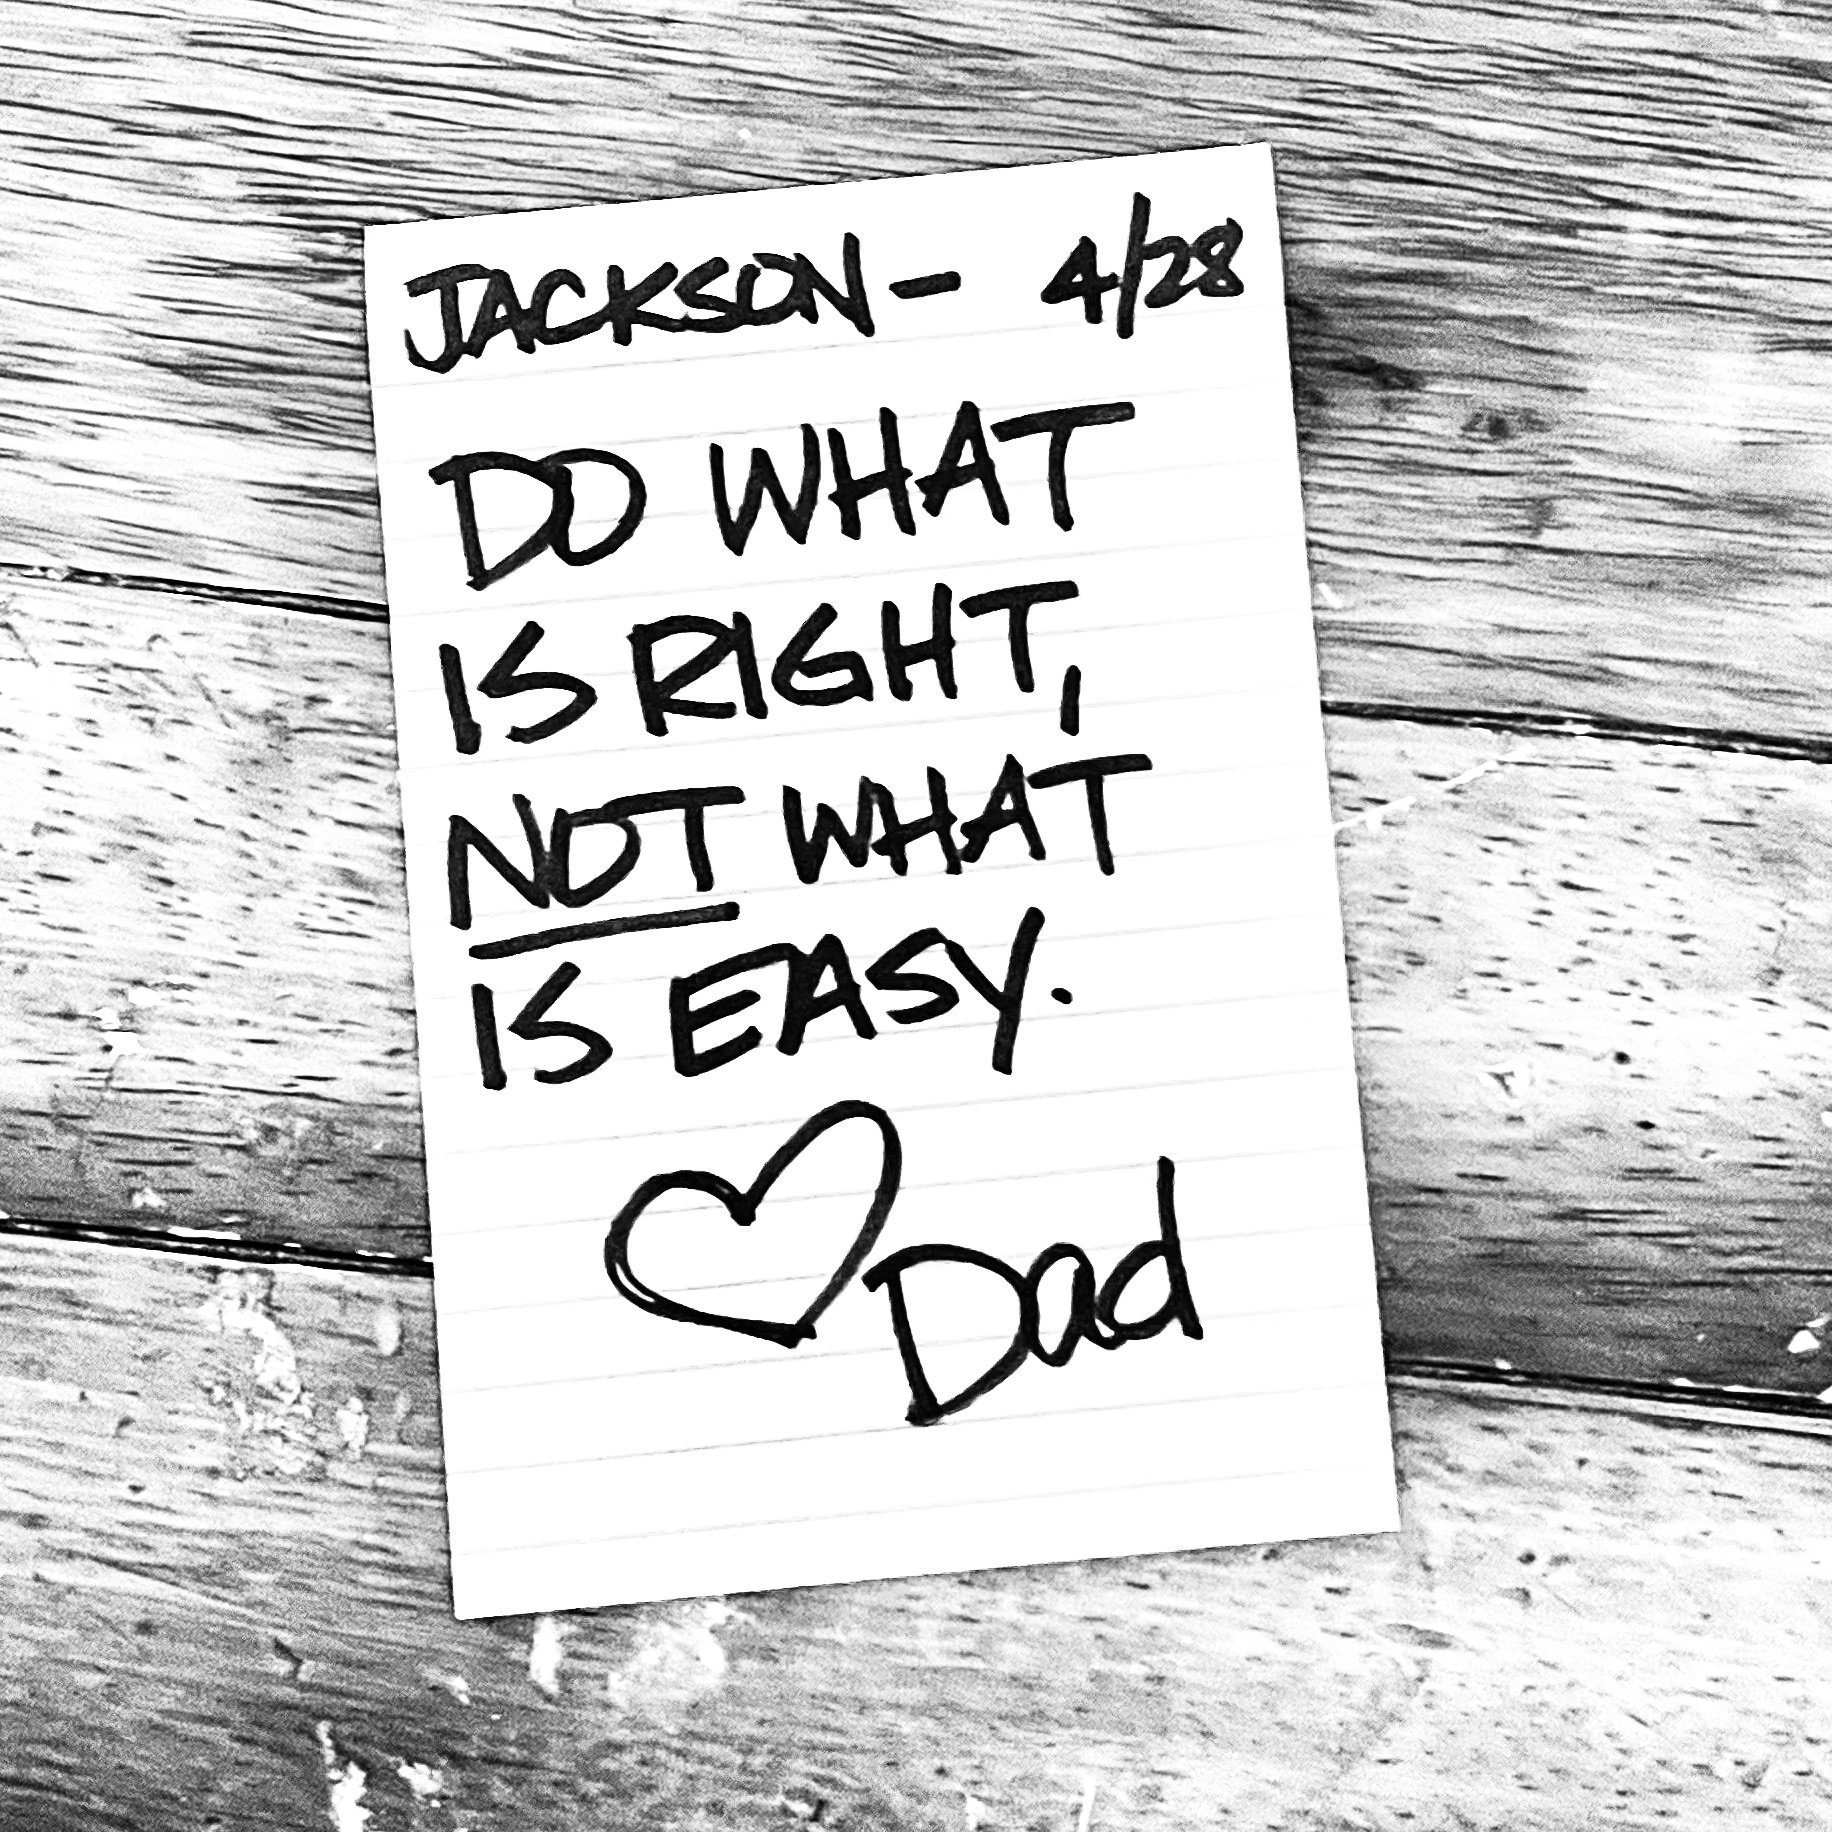 JACKSON - 4/28
DO WHAT
IS RIGHT,
NOT WHAT
IS EASY.
Dad